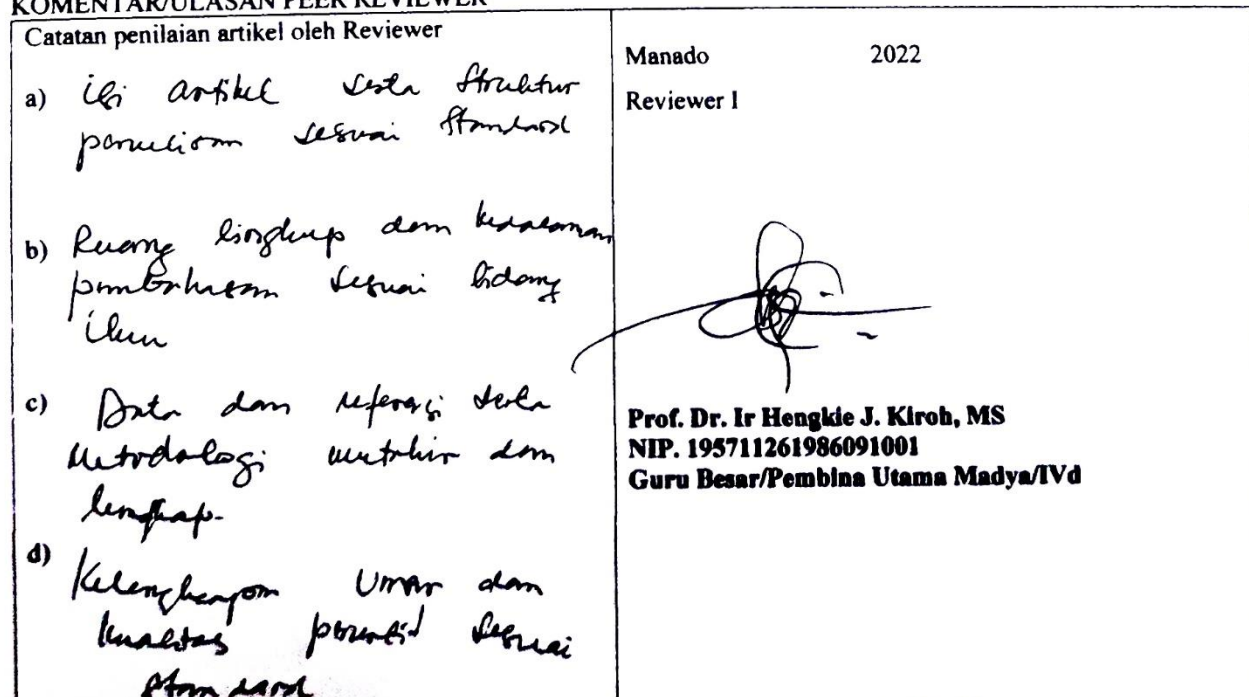 KOMENTAR/ULASAN PEER REVIEWER
Catatan penilaian artikel oleh Reviewer
a) isi artikel serta struktur
penulisan sesuai standard
b) Ruang lingkup dan kedalaman
pembahasan sesuai bidang
ilmu
c) Data dan referensi serta
Metodologi mutahir dan
lengkap.
d) Kelengkapan Unsur dan
kualitas penerbit sesuai
standard
Manado 2022
Reviewer 1
Prof. Dr. Ir Hengkie J. Kiroh, MS
NIP. 195711261986091001
Guru Besar/Pembina Utama Madya/IVd